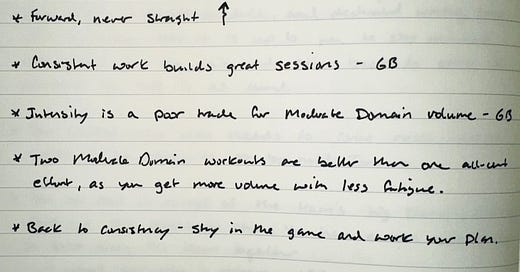 * Forward, never straight ↑
* Consistent work builds great sessions - GB
* Intensity is a poor trade for Moderate Domain volume - GB
* Two Moderate Domain workouts are better than one all-out
effort, as you get more volume with less fatigue.
* Back to consistency - stay in the game and work your plan.